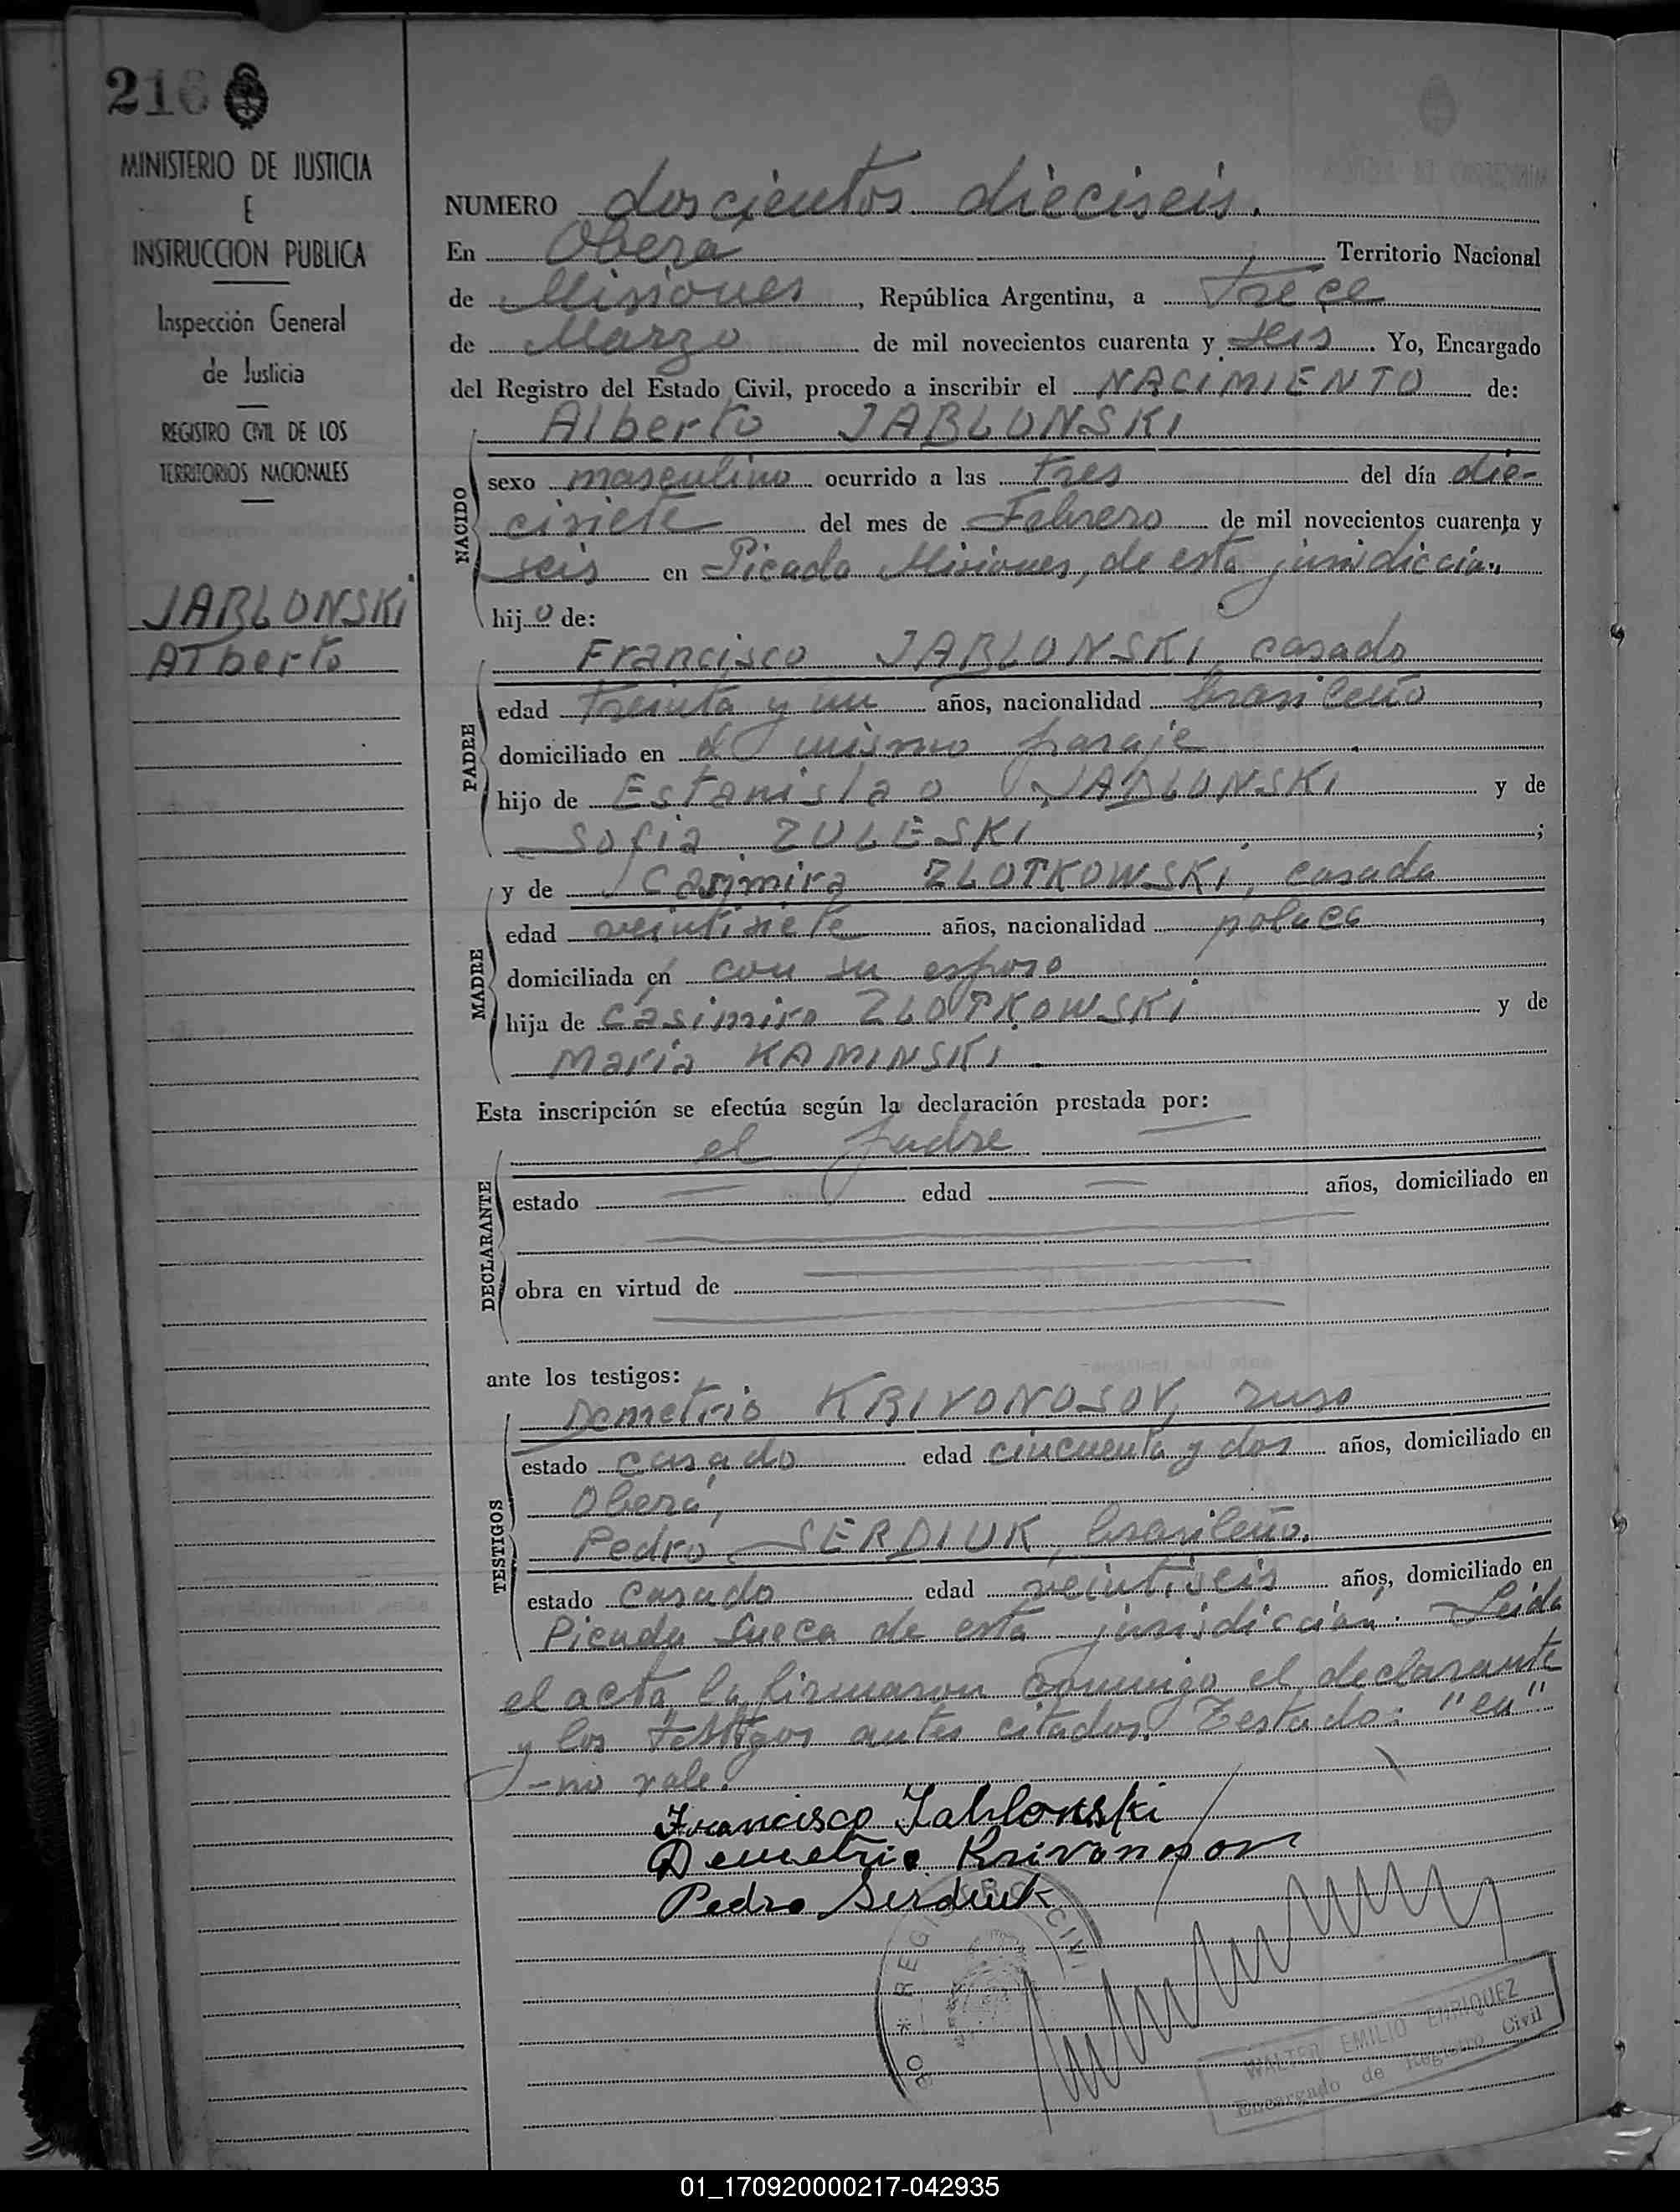 216
MINISTERIO DE JUSTICIA
E
INSTRUCCION PUBLICA
Inspección General
de Justicia
REGISTRO CIVIL DE LOS
TERRITORIOS NACIONALES
JABLONSKI
Alberto
NUMERO doscientos dieciseis.
En Obera Territorio Nacional
de Misiones, República Argentina, a trece
de Marzo de mil novecientos cuarenta y seis. Yo, Encargado
del Registro del Estado Civil, procedo a inscribir el NACIMIENTO de:
Alberto JABLONSKI
NACIDO
sexo masculino ocurrido a las tres del día die-
cisiete del mes de Febrero de mil novecientos cuarenta y
seis en Picada Misiones, de esta jurisdicción,
hijo de:
Francisco JABLONSKI, casado
PADRE
edad treinta y un años, nacionalidad brasileño,
domiciliado en el mismo paraje
hijo de Estanislao JABLONSKI y de
Sofia ZULESKI;
MADRE
y de Casimira ZLOTKOWSKI, casada
edad veintisiete años, nacionalidad polaca,
domiciliada en con su esposo
hija de Casimiro ZLOTKOWSKI y de
Maria KAMINSKI
Esta inscripción se efectúa según la declaración prestada por:
el padre
DECLARANTE
estado edad años, domiciliado en
obra en virtud de
ante los testigos:
Demetrio KRIVONOSOV, ruso
TESTIGOS
estado casado edad cincuenta y dos años, domiciliado en
Oberá,
Pedro SERDIUK, brasileño.
estado casado edad veintiseis años, domiciliado en
Picada Sueca de esta jurisdicción. Leida
el acta la firmaron conmigo el declarante
y los testigos antes citados. Testado: "en"
-no vale.
Francisco Jablonski
Demetrio Krivonosov
Pedro Serdiuk
REGISTRO CIVIL
WALTER EMILIO ENRIQUEZ
Encargado de Registro Civil
01_170920000217-042935